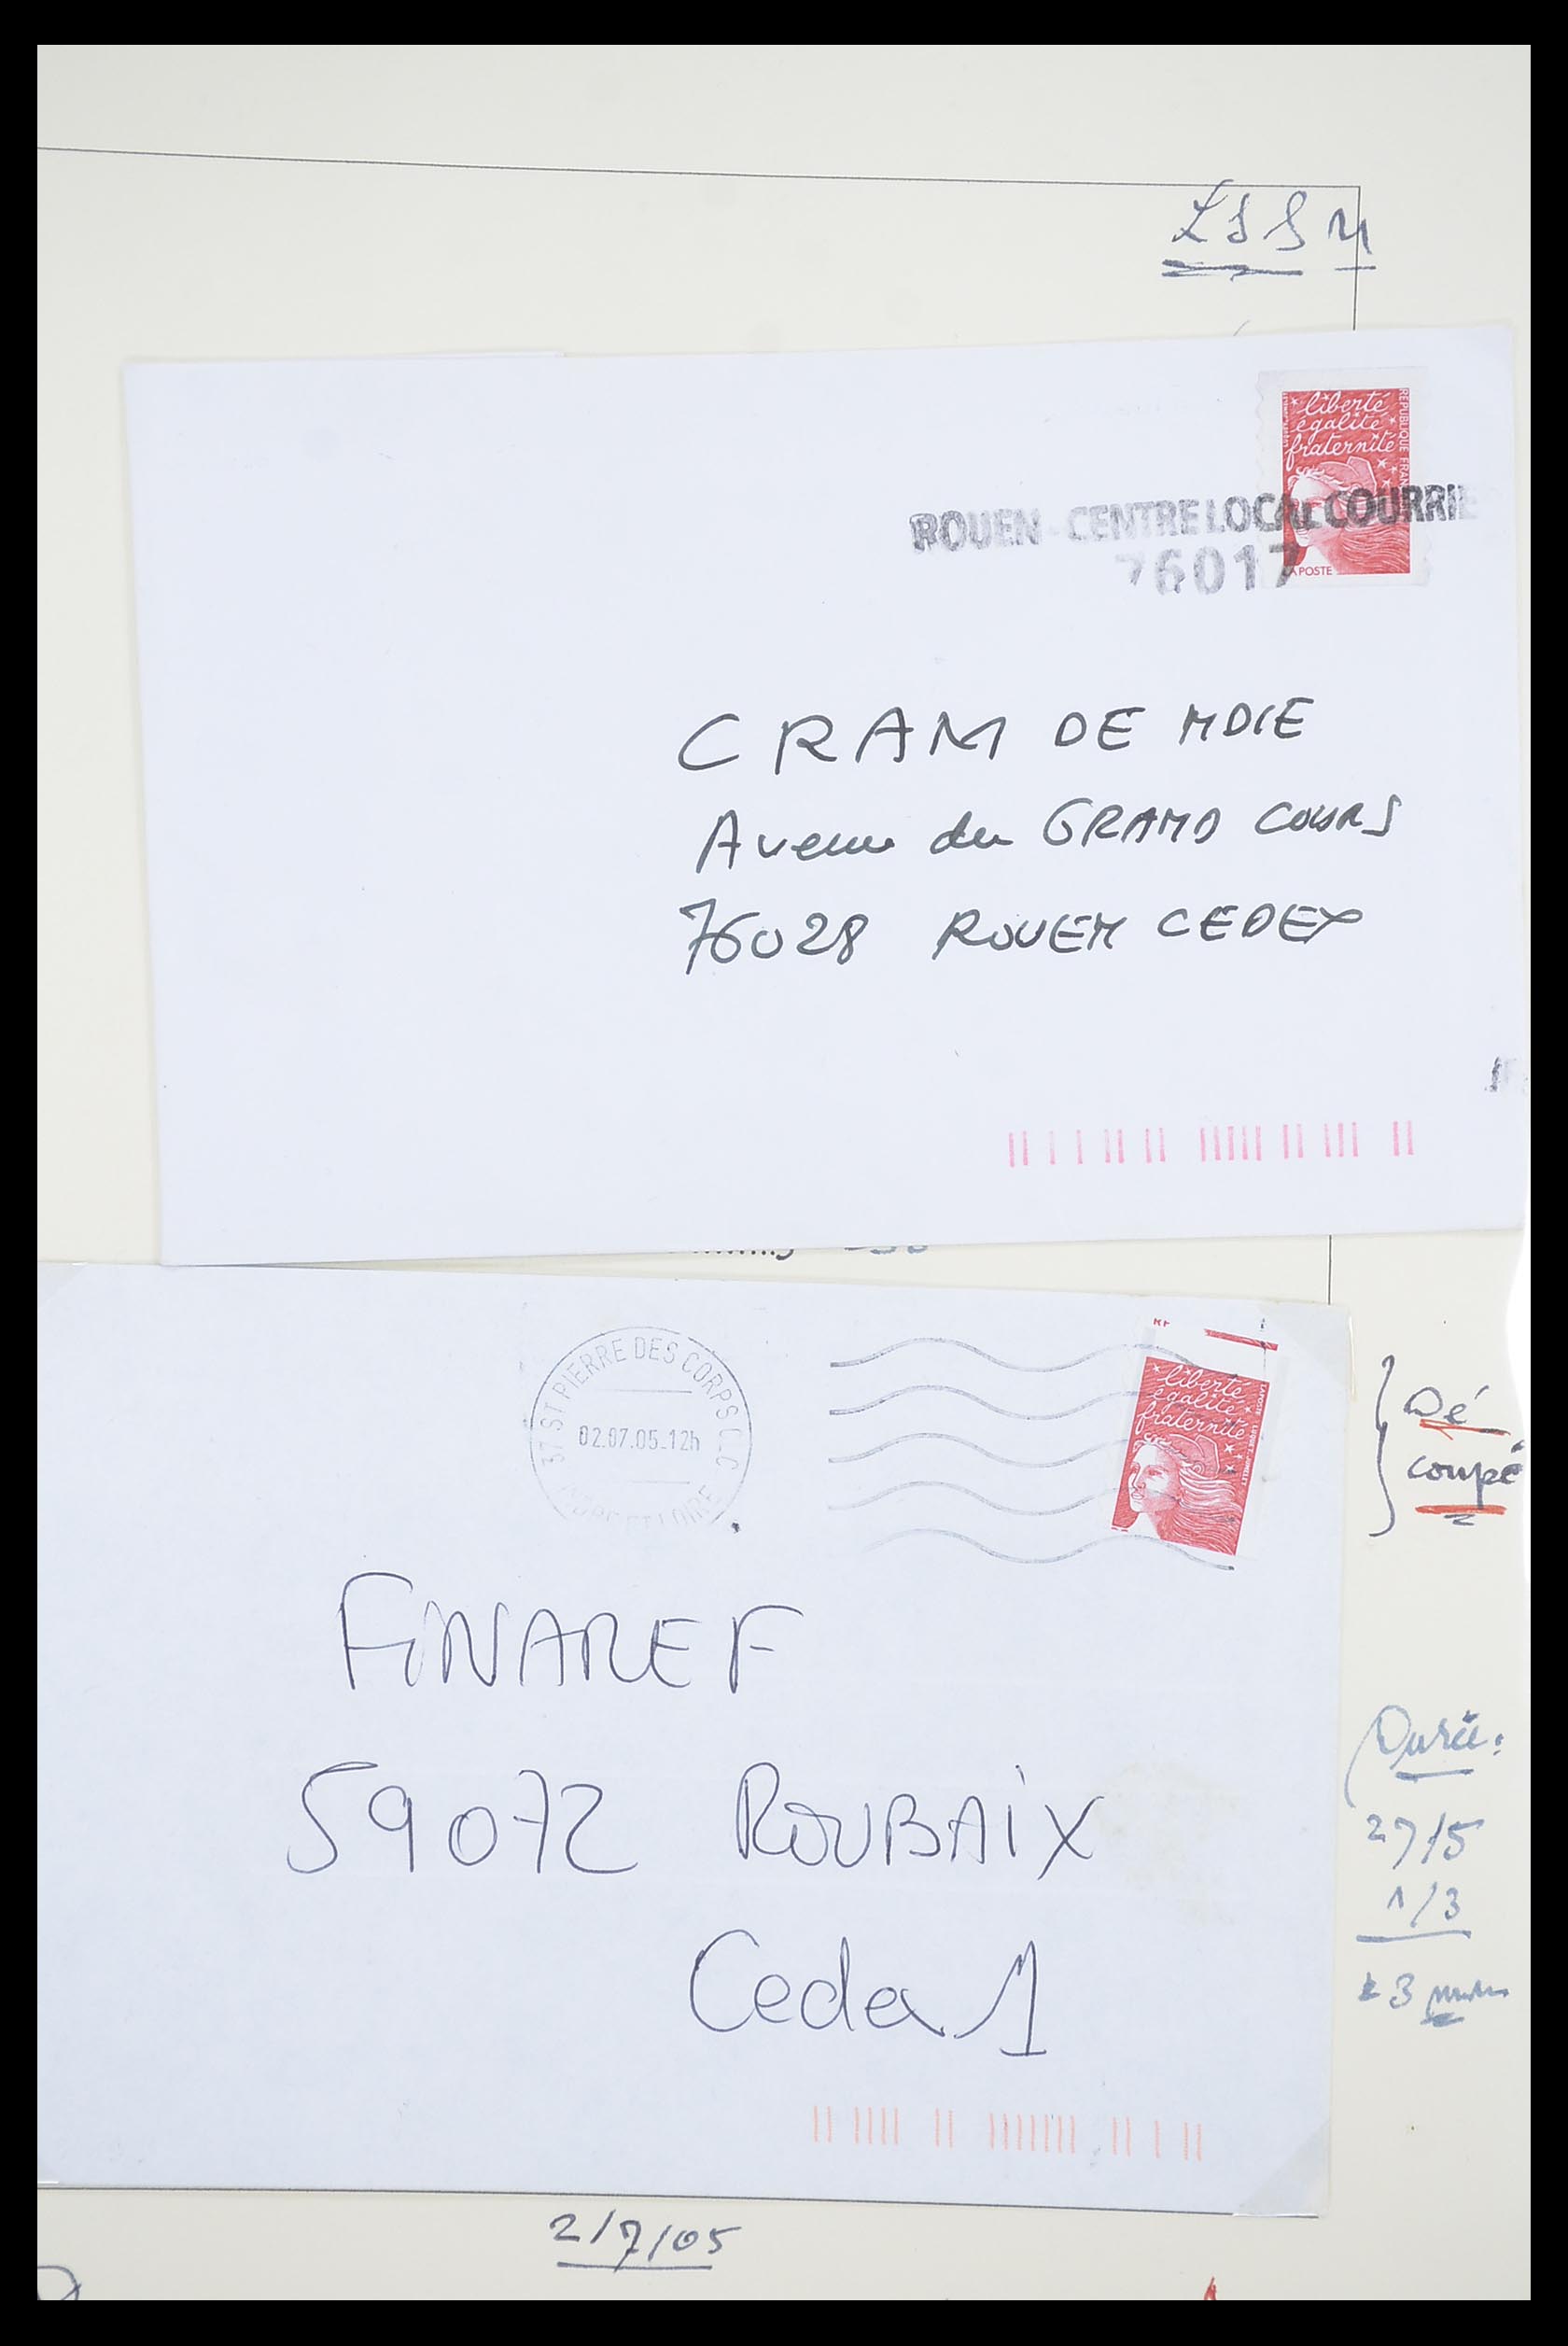 liberté
égalité
fraternité
RÉPUBLIQUE FRA
LA POSTE
ROUEN - CENTRE LOCAL COURRIE
76017
CRAM DE NDIE
Avenue du GRAND COURS
76028 ROUEN CEDEX
RF
liberté
égalité
fraternité
37 ST PIERRE DES CORPS CLC
02.07.05.12h
INDRE ET LOIRE
Dé
coupé
FiNAREF
59072 ROUBAiX
Cedex 1
Durée:
27/5
1/3
2/7/05